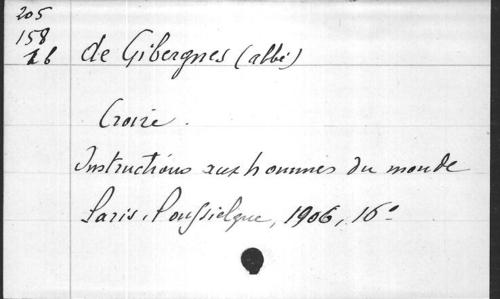 205
158
16
de Gibergues (abbé)
Croire.
Instructions aux hommes du monde
Paris, Poussielgue, 1906, 16°